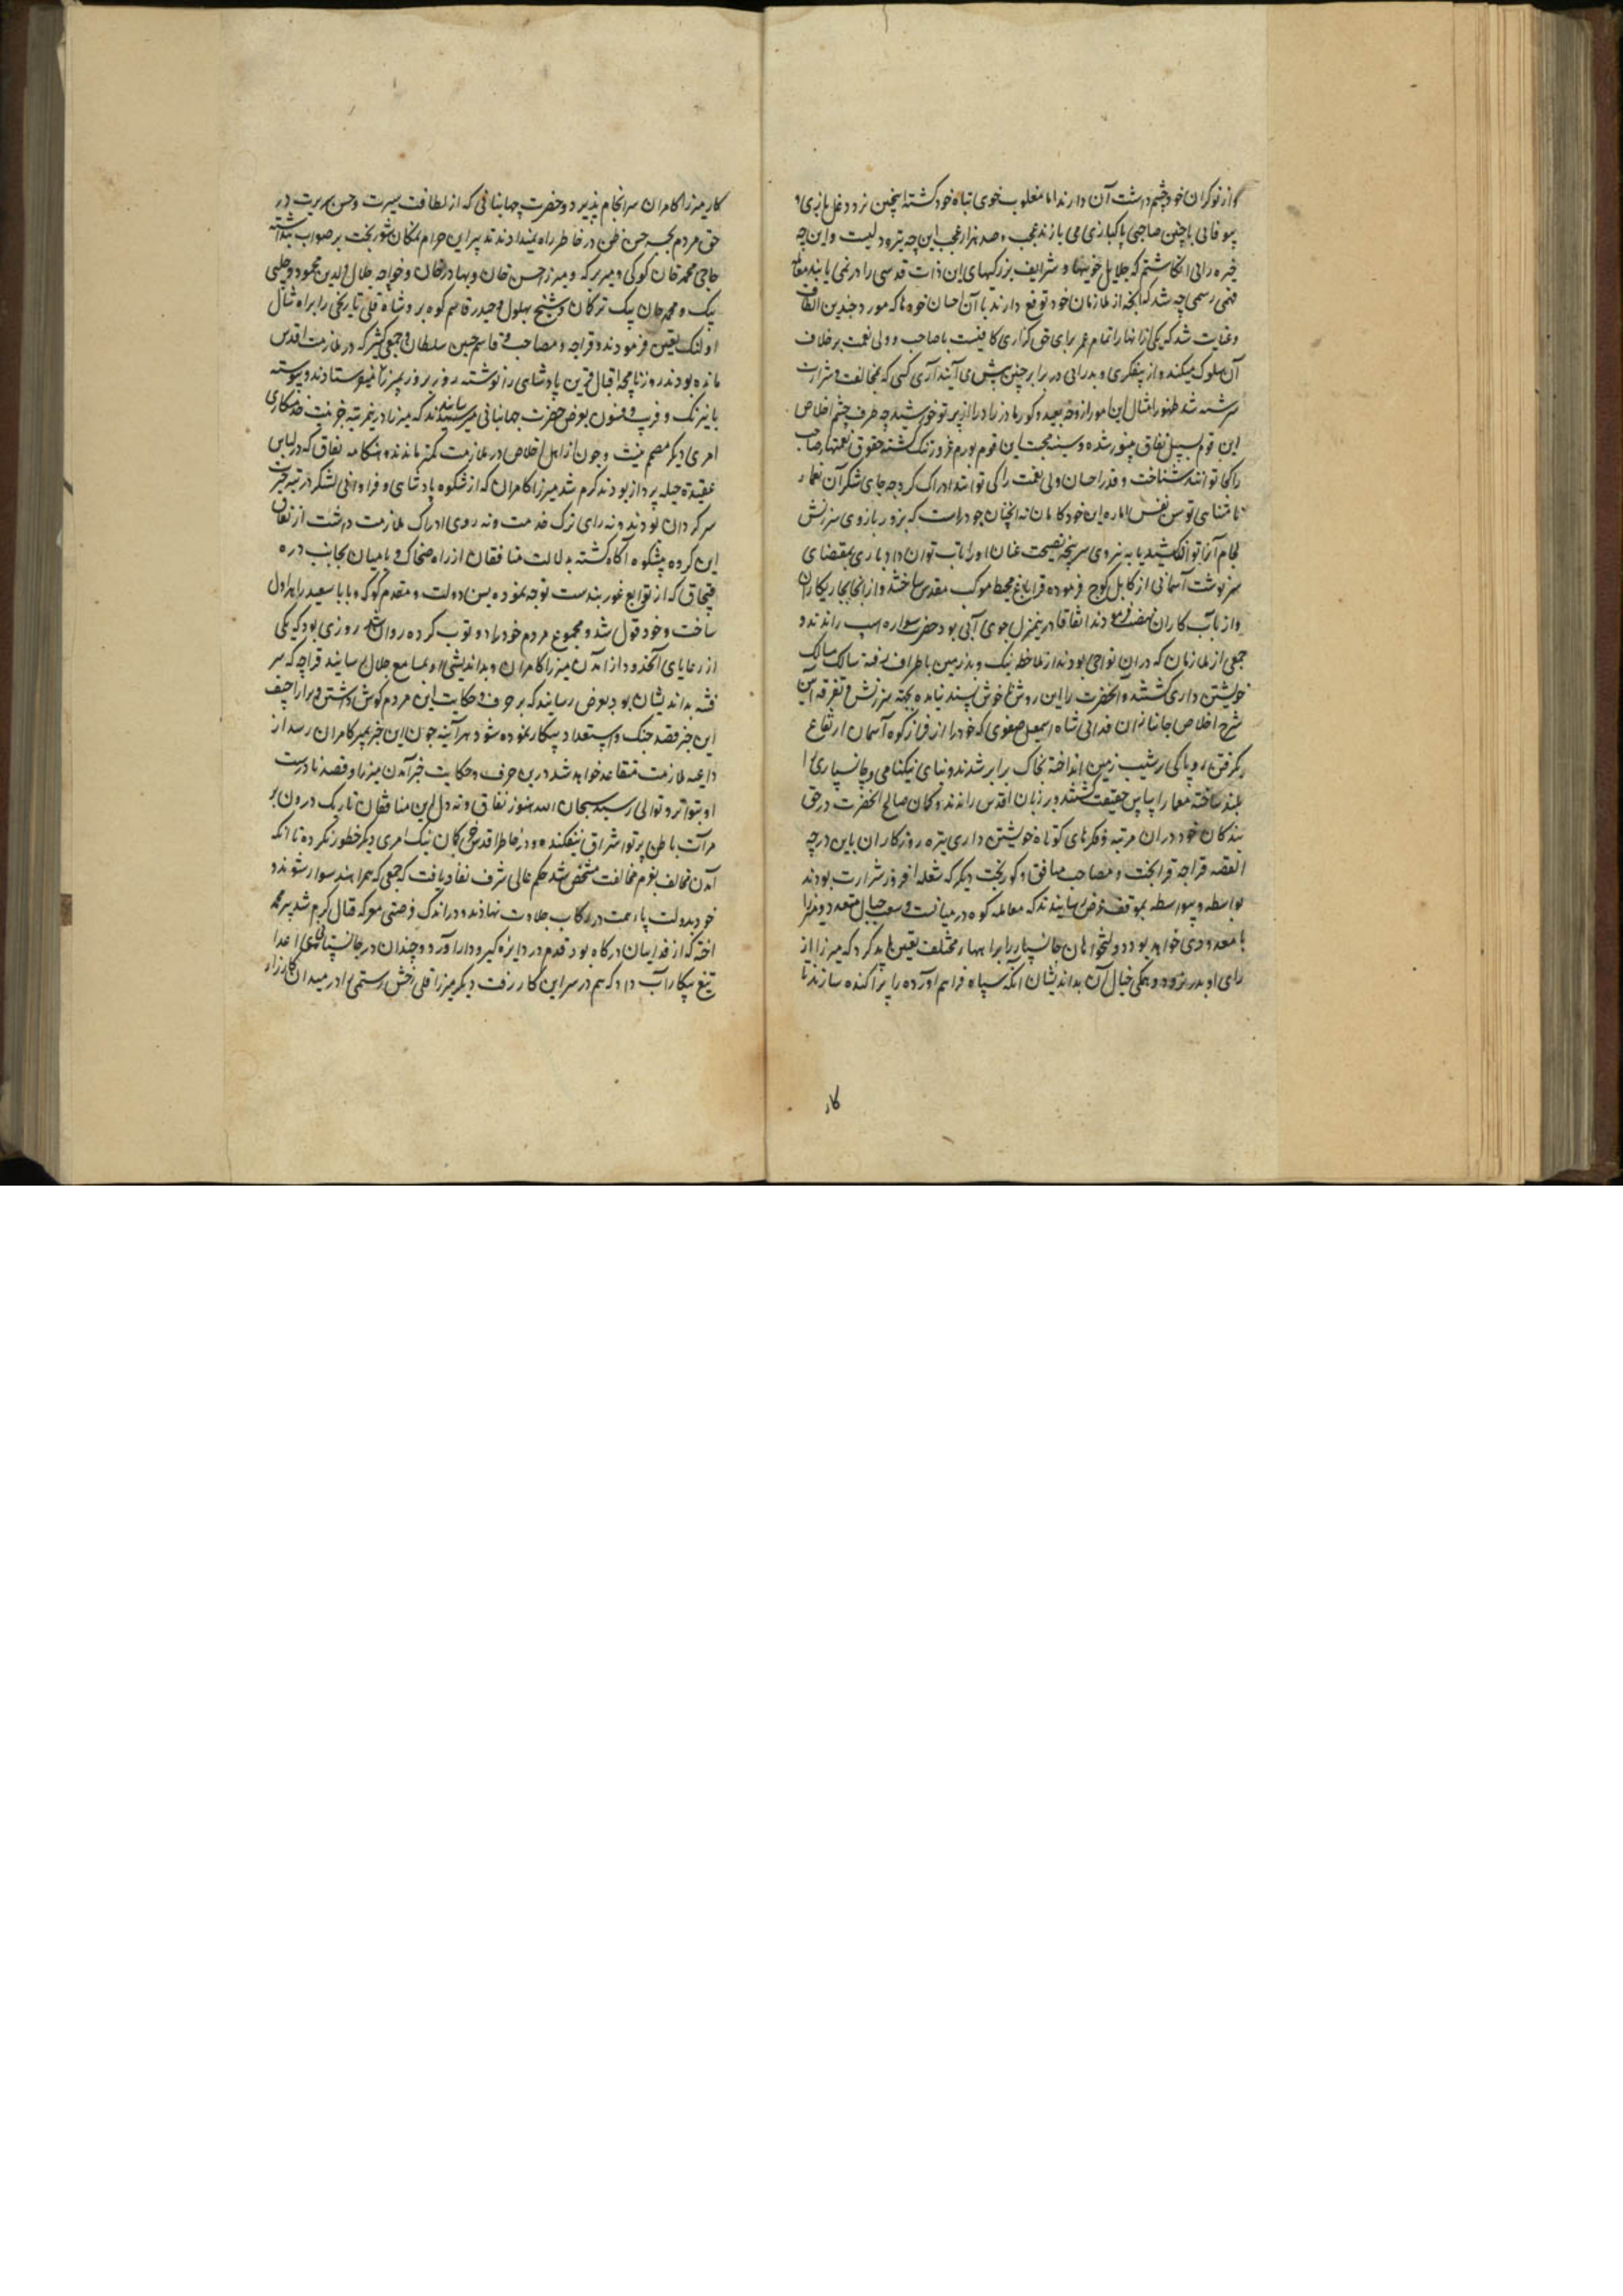 از نوکران خود چشم داشت آن دارند اما مغلوب خوی تباه خود گشته اینچنین نرد دغل بازی و
بیوفائی با چنین صاحبی پاکبازی می بازند عجب و صد هزار عجب این چه بی ترددلیست و این چه
خیره رائی انکاشتم که جلایل خوبیها و شرایف بزرگیهای این ذات قدسی را در نمی یابند معامله
فهمی رسمی چه شد که آنچه از ملازمان خود توقع دارند با آن احسان خودها که مورد چندین الطاف
و عنایت شد که یکی از انها را تمام عمر برای حق گذاری کافیست با صاحب و ولی نعمت برخلاف
آن سلوک میکنند و از بیفکری و بدرایی در برابر چنین پیش می آیند آری کسی که بمخالفت و شرارت
سرشته شد ظهور امثال این امور از وجه بعید و کور مادرزاد را از پرتو خورشید چه طرف چشم اخلاص
این قوم بسبیل نفاق بینور شده و سینه محبت این قوم بورم غرور تنگ گشته حقوق نعمتهاء صاحب
را کجا توانند شناخت و قدر احسان ولی نعمت را کی توانند ادراک کرد چه جای شکر آن نعماء
نامتناهی توسن نفس اماره این خودکامان نه آنچنان جود است که بزور بازوی سرزنش
لجام آنرا توان کشید یا به نیروی سرپنجه نصیحت عنان او را تاب توان داد باری بمقتضای
سرنوشت آسمانی از کابل کوچ فرموده قراباغ محیط موکب مقدس ساختند و از انجا بچاریکاران
و از باب کاران نهضت فرمودند اتفاقا درین منزل جوی آبی بود حضرت سواره اسب راندند و
جمعی از ملازمان که در ان نواحی بودند از ملاحظه نیک و بد زمین باطراف رفته سالک مسالک
خویشتن داری گشتند و آنحضرت را این روش ناخوش پسند نیامده بجهت سرزنش و تفرقه این
شرح اخلاص جانبازان فدائی شاه اسمعیل صفوی که خود را از فراز کوه آسمان ارتفاع
بکرفتن رو پاکی در نشیب زمین انداخته بخاک برابر شدند و بنای نیکنامی و جانسپاری را
بلند ساخته معمار اساس حقیقت گشتند و بر زبان اقدس راندند و کمان صالح آنحضرت در حق
بندکان خود دران مرتبه و فکرهای کوتاه خویشتن داری تیره روزکاران باین درجه
القصه قراجه قرابخت و مصاحب منافق و کوربخت دیکر که شعله افروز شرارت بودند
بواسطه و بیواسطه بموقف عرض رسانیدند که معامله کوه در میانست و سعب جبال متعدد و میرزا
با معدودی خواهد بود دولتخواهان جانسپار را براههاء مختلف تعیین باید کرد که میرزا از
رای او بدر نرود و همکی خیال آن بداندیشان آنکه سپاه فراهم آورده را پراکنده سازند تا
کار
کار میرزا کامران سرانجام پذیرد و حضرت جهانبانی که از لطافت سیرت و حسن سریرت در
حق مردم بجز حسن ظن در خاطر راه نمیدادند تدبیر این حرام نمکان شوربخت بر صواب پنداشته
حاجی محمد خان کوکی و میر برکه و میرزا حسن خان و بهادر خان و خواجه جلال الدین محمود و چلبی
بیک و محمد خان بیک ترکمان و شیخ بهلول و حیدر قاسم کوه بر و شاه قلی تاریخی را براه شال
اولنک تعیین فرمودند و قراجه و مصاحب و قاسم حسین سلطان و جمعی کثیر که در ملازمت اقدس
مانده بودند روزنامچه اقبال قرین پادشاهی را نوشته روز بروز بمیرزا میفرستادند و پیوسته
بانیرنک و فریب و فسون بعرض حضرت جهانبانی میرسانیدند که میرزا درین مرتبه جز نیت خدمتکاری
امری دیکر مصمم نیست و چون از اهل اخلاص در ملازمت کمتر ماندند و هنکامه نفاق که در لباس
عقیدت حیله پرداز بودند کرم شد میرزا کامران که از شکوه پادشاهی و فراوانی لشکر در تیه حیرت
سرکردان بودند و نه رای ترک خدمت و نه روی ادراک ملازمت داشت از نفاق
این کروه بیشکوه آکاه کشته بدلالت منافقان از راه ضحاک و بامیان بجانب دره
قبچاق که از توابع غوربندست توجه نموده یسن دولت و مقدم کوکه و بابا سعید را هراول
ساخت و خود قول شد و مجموع مردم خود را دو توب کرده روان شد روزی بود که یکی
از رعایای آنحدود از آمدن میرزا کامران و بداندیشی او بمسامع جلال رسانید قراچه که سر
فتنه بداندیشان بود بعرض رسانید که بر حرف و حکایت این مردم کوش داشتن و برای اراجیف
این خبر قصد جنک و استعداد پیکار نموده شود هرآینه چون این خبر بمیرزا کامران رسد از
داعیه ملازمت متقاعد خواهد شد درین حرف و حکایت خبر آمدن میرزا و قصد نادرست
او بتواتر و توالی رسید سبحان الله هنوز نفاق و نه دلی این منافقان تاریک درون بر
مرآت باطن پرتو اشراق نیفکنده و در خاطر اقدس جز کمان نیک امری دیکر خطور نکرده تا آنکه
آمدن مخالف بعزم مخالفت مشخص شد حکم عالی شرف نفاذ یافت که جمعی که همراهند سوار شوند و
خود بدولت پای همت در رکاب جلادت نهادند و در اندک فرصتی معرکه قتال کرم شد پیر محمد
اخته که از فدائیان درکاه بود قدم در دایره کیرودار آورد و چندان در جانستانی اعدا
تیغ پیکار آب داد که هم در سر این کار رفت دیکر میرزا قلی رخش رستمی را در میدان کارزار